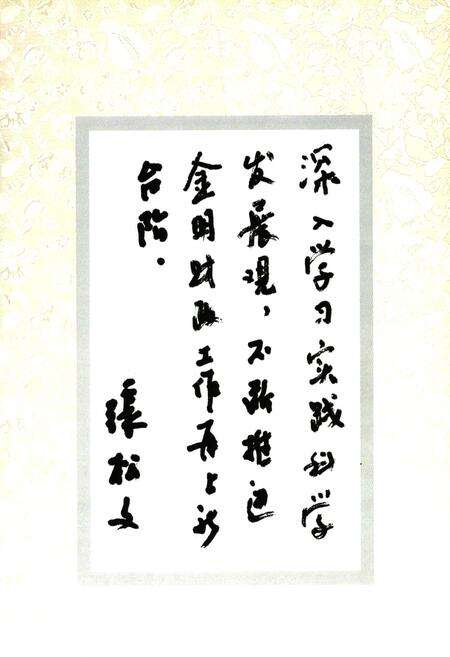 深入学习实践科学
发展观，不断推进
金明财政工作再上新
台阶。
张松文